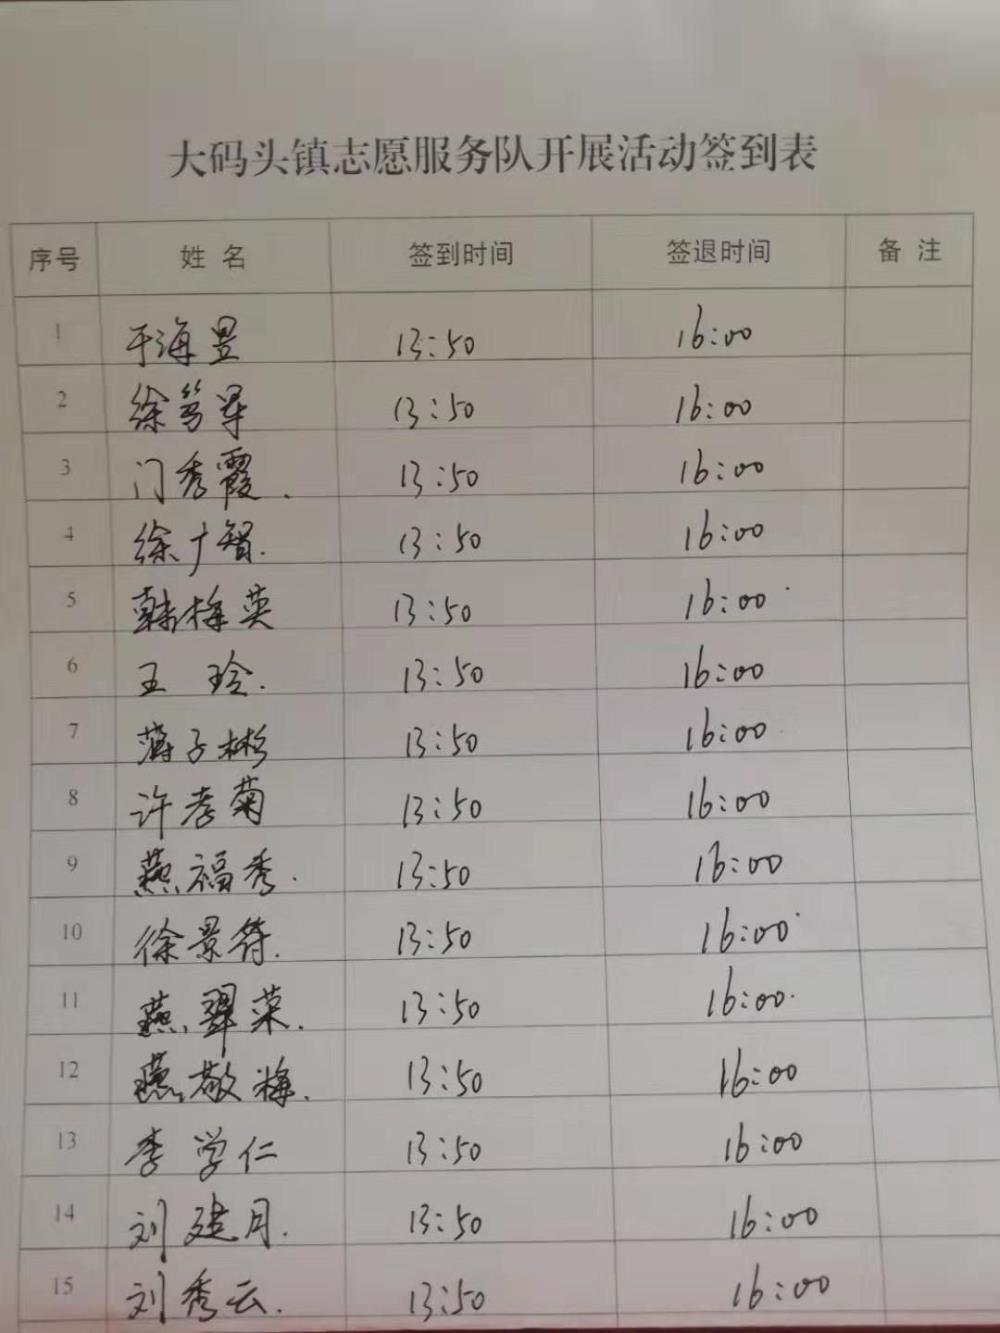 大码头镇志愿服务队开展活动签到表
序号 姓名 签到时间 签退时间 备注
1 于海昱 13:50 16:00
2 徐 13:50 16:00
3 门秀霞. 13:50 16:00
4 徐广智. 13:50 16:00
5 韩梅英 13:50 16:00
6 王玲. 13:50 16:00
7 薄子彬 13:50 16:00
8 许孝菊 13:50 16:00
9 燕福秀. 13:50 16:00
10 徐景符. 13:50 16:00
11 燕翠菜. 13:50 16:00
12 燕敬梅. 13:50 16:00
13 李学仁 13:50 16:00
14 刘建月. 13:50 16:00
15 刘秀云. 13:50 16:00